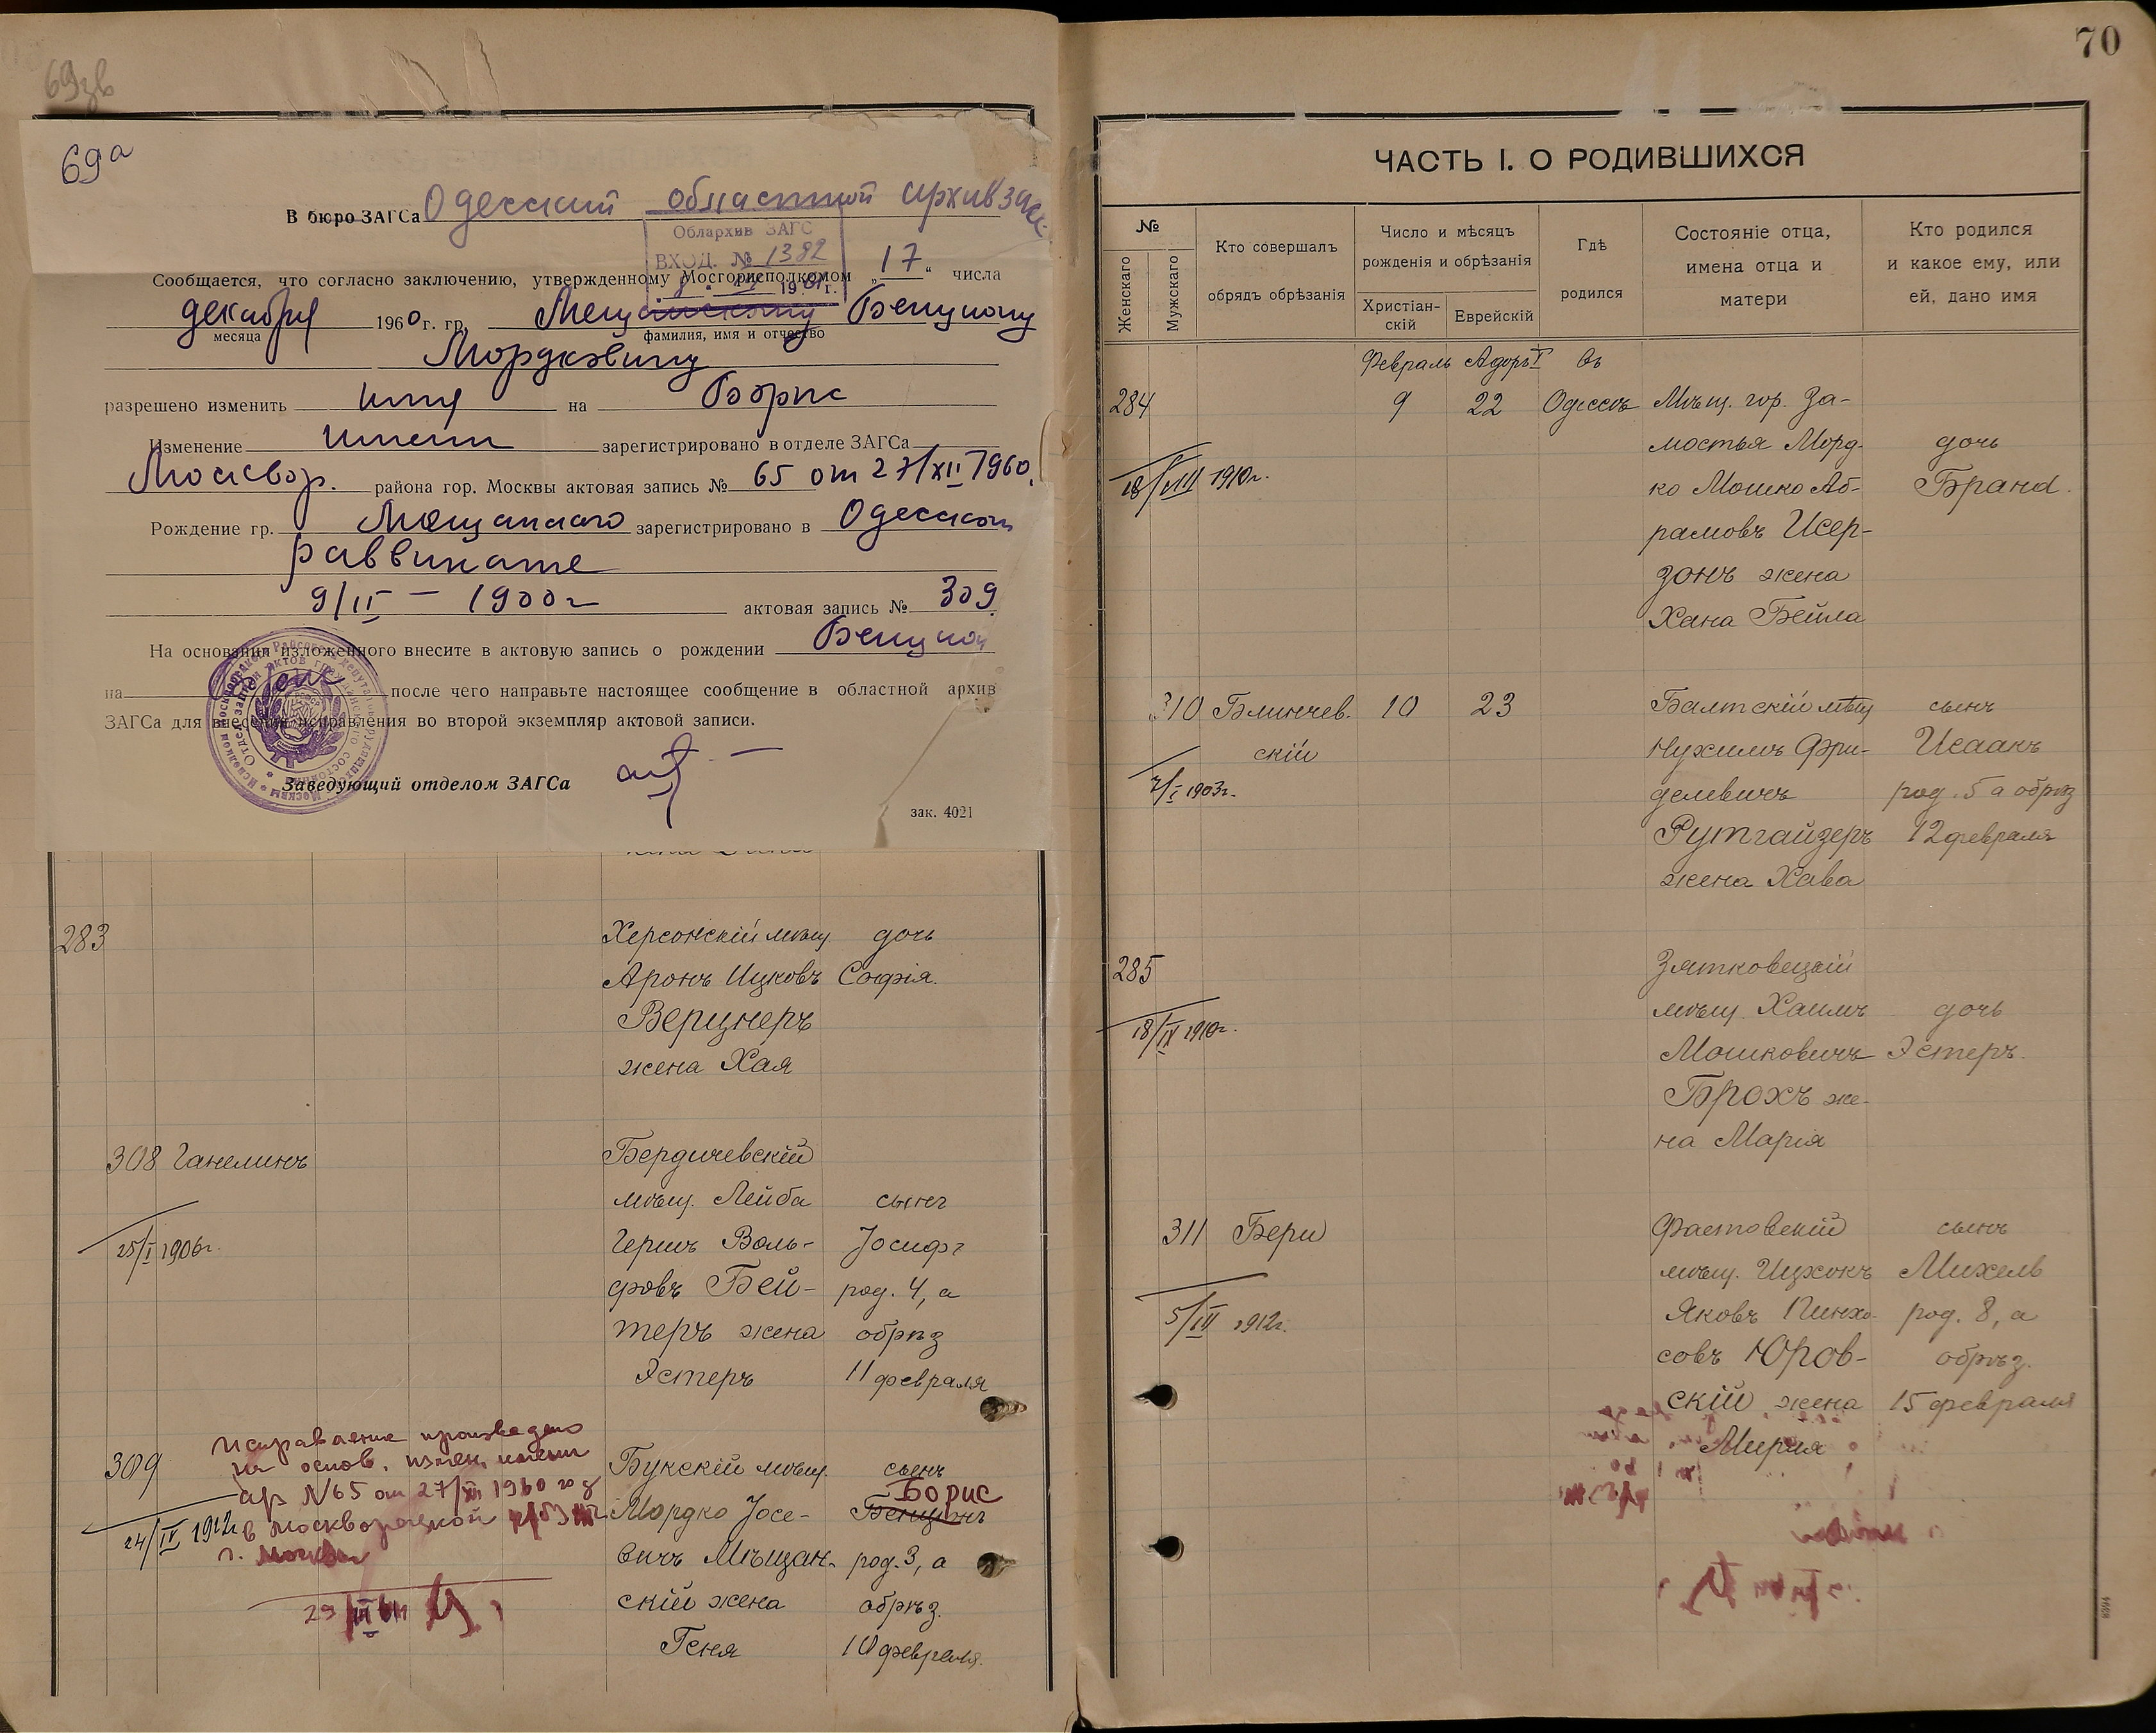 69зв
69а
В бюро ЗАГСа Одесский областной архив загс
Облархив ЗАГС
ВХОД. № 1382
Сообщается, что согласно заключению, утвержденному Мосгорисполкомом „17“ числа
декабря 1960 г. гр. Мещанскому Бенциону
месяца
фамилия, имя и отчество
Мордковичу
разрешено изменить имя на Борис
Изменение имени зарегистрировано в отделе ЗАГСа
Москвор. района гор. Москвы актовая запись № 65 от 27/XII 1960.
Рождение гр. Мещанского зарегистрировано в Одесском
раввинате
9/II – 1900г актовая запись № 309
На основании изложенного внесите в актовую запись о рождении Бенцион
на после чего направьте настоящее сообщение в областной архив
ЗАГСа для внесения исправления во второй экземпляр актовой записи.
Заведующий отделом ЗАГСа
зак. 4021
283 Херсонскій мѣщ. дочь
Аронъ Ицковъ Софія.
Верцнеръ
жена Хая
308 Ганелинъ Бердичевскій
мѣщ. Лейба сынъ
25/I 1906г. Гершъ Воль- Іосифъ
фовъ Бей- род. 4, а
теръ жена обрѣз
Эстеръ 11 февраля
Исправление произведено
на основ. измен. имени
а/з №65 от 27/XII 1960 год
в Москворецком р/бз
г. Москвы
309 Букскій мѣщ. сынъ
Борис
24/IV 1912г. Мордко Іосе- Бенціонъ
вичъ Мѣщан- род. 3, а
скій жена обрѣз.
Геня 10 февраля.
29/III 61
70
ЧАСТЬ I. О РОДИВШИХСЯ
№
Женскаго
Мужскаго
Кто совершалъ
обрядъ обрѣзанія
Число и мѣсяцъ
рожденія и обрѣзанія
Христіан-
скій
Еврейскій
Гдѣ
родился
Состояніе отца,
имена отца и
матери
Кто родился
и какое ему, или
ей, дано имя
Февраль Адоръ I въ
284 9 22 Одессѣ Мѣщ. гор. За-
мостья Морд- дочь
18/VIII 1910г. ко Мошко Аб- Бранд.
рамовъ Исер-
зонъ жена
Хана Бейла
310 Блинчев- 10 23 Балтскій мѣщ сынъ
скій Нухимъ Фри- Исаакъ
7/I 1903г. делевичъ род. 5 а обрѣз
Рутгайзеръ 12 февраля
жена Хава
285 Зятковецкій
мѣщ. Хаимъ дочь
18/IX 1910г. Мошковичъ Эстеръ.
Брохъ же-
на Марія
311 Бери Фастовскій сынъ
мѣщ. Ицхокъ Михель
5/IV 1912г. Яковъ Пинхо- род. 8, а
совъ Юров- обрѣз.
скій жена 15 февраля
Мирля